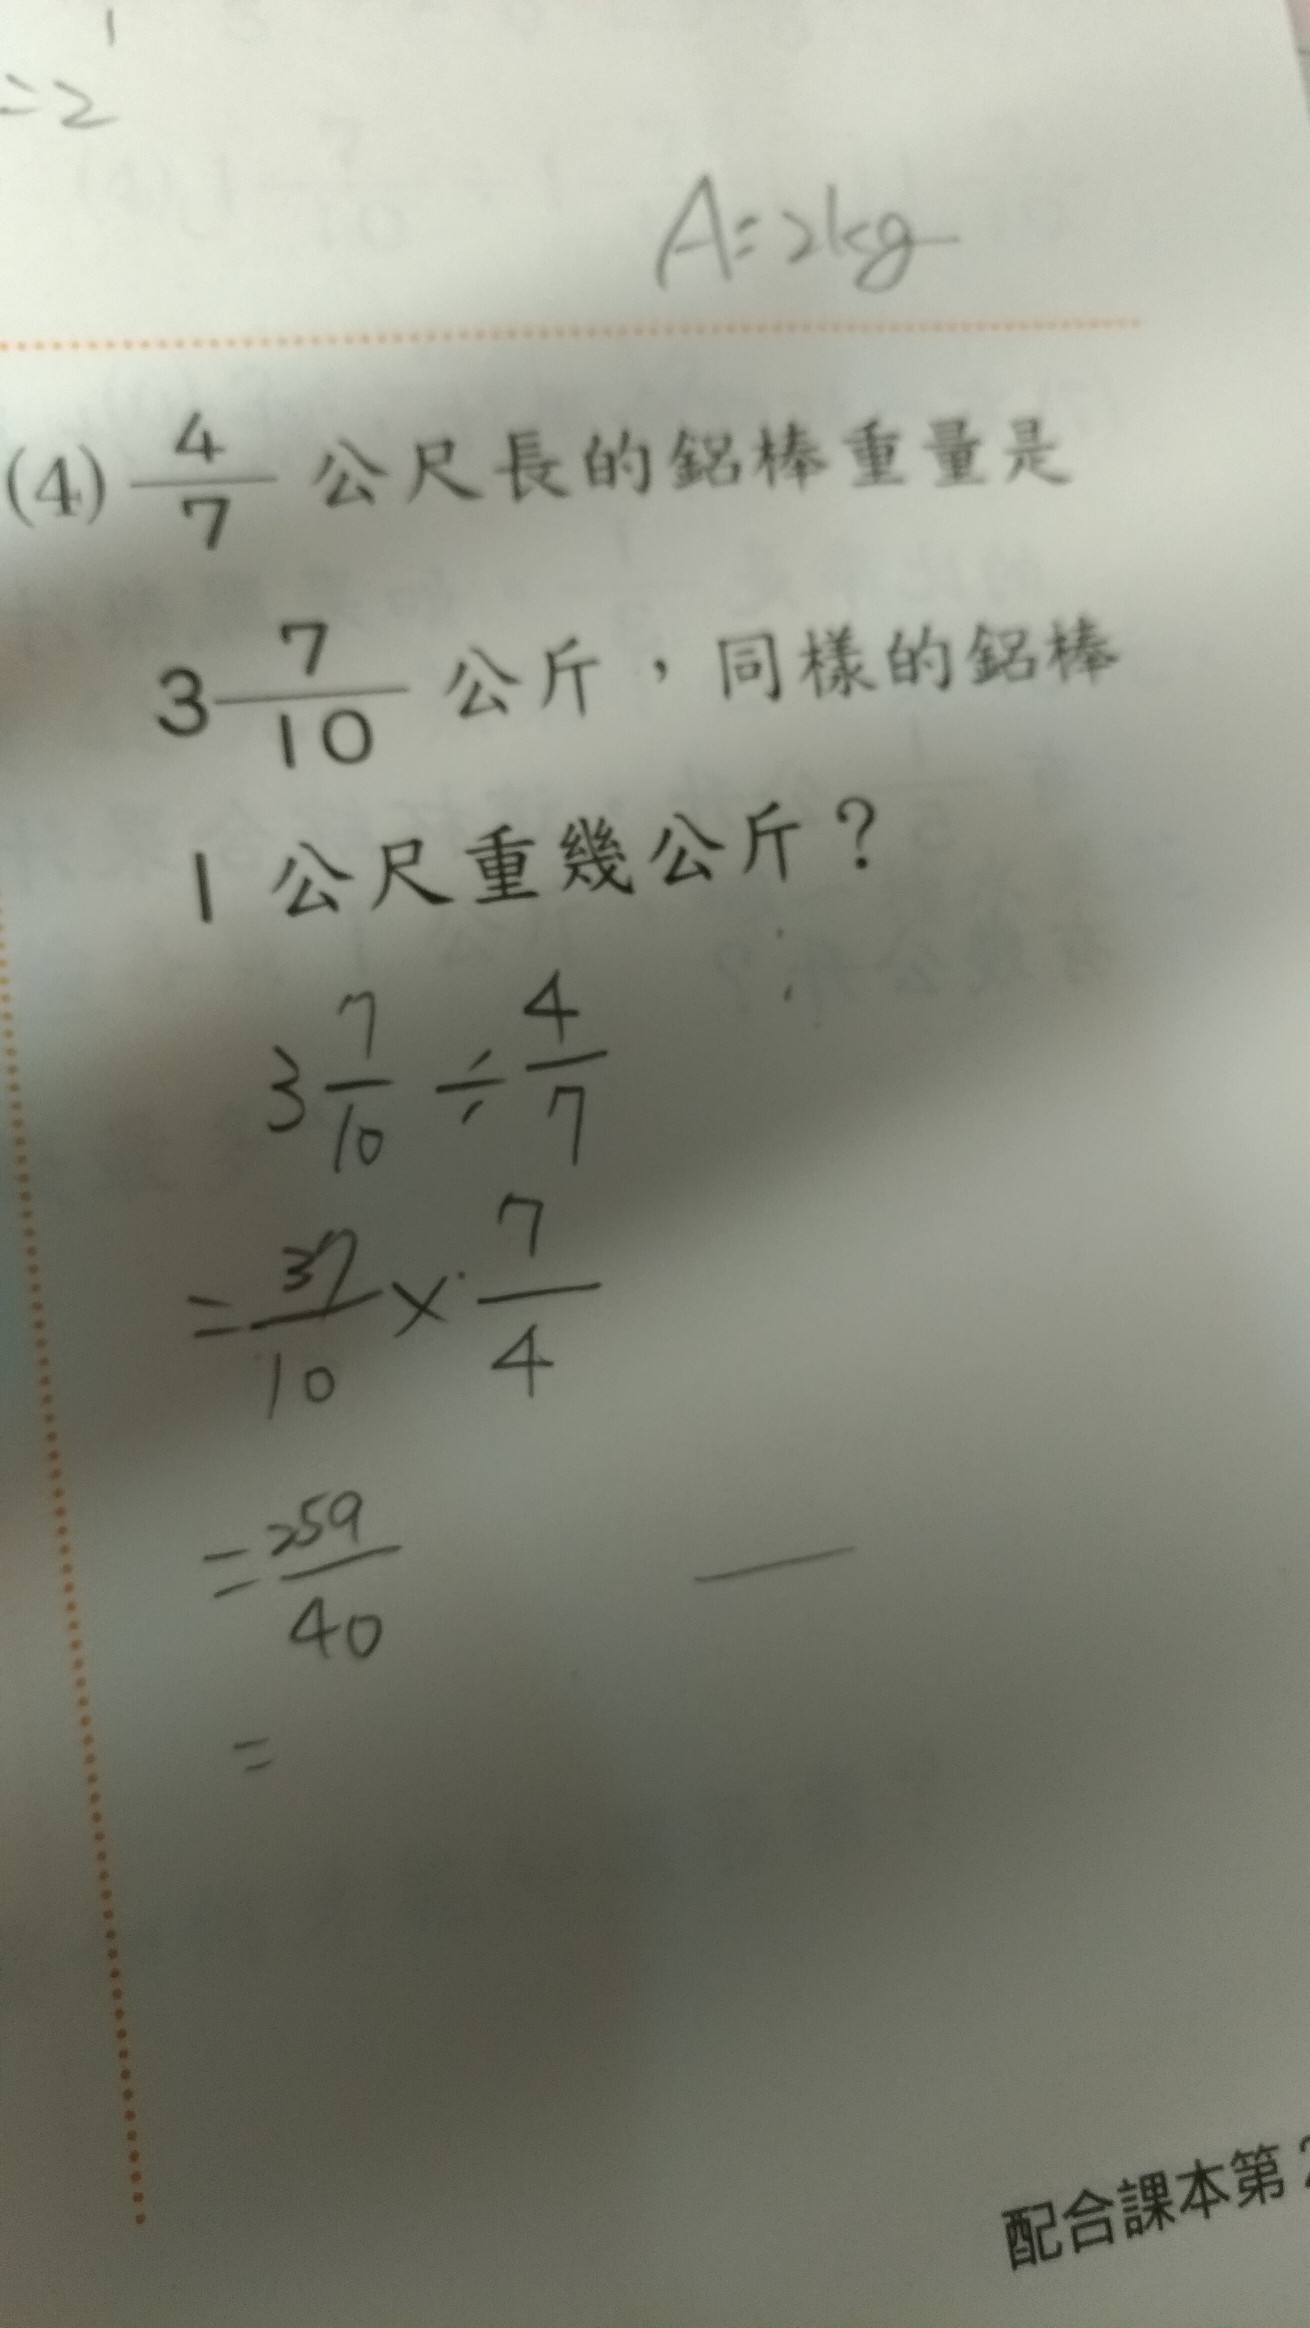 1
=2
A=2kg
(4) 4/7 公尺長的鋁棒重量是
3 7/10 公斤，同樣的鋁棒
1 公尺重幾公斤？
3 7/10 ÷ 4/7
= 37/10 × 7/4
= 259/40
=
配合課本第